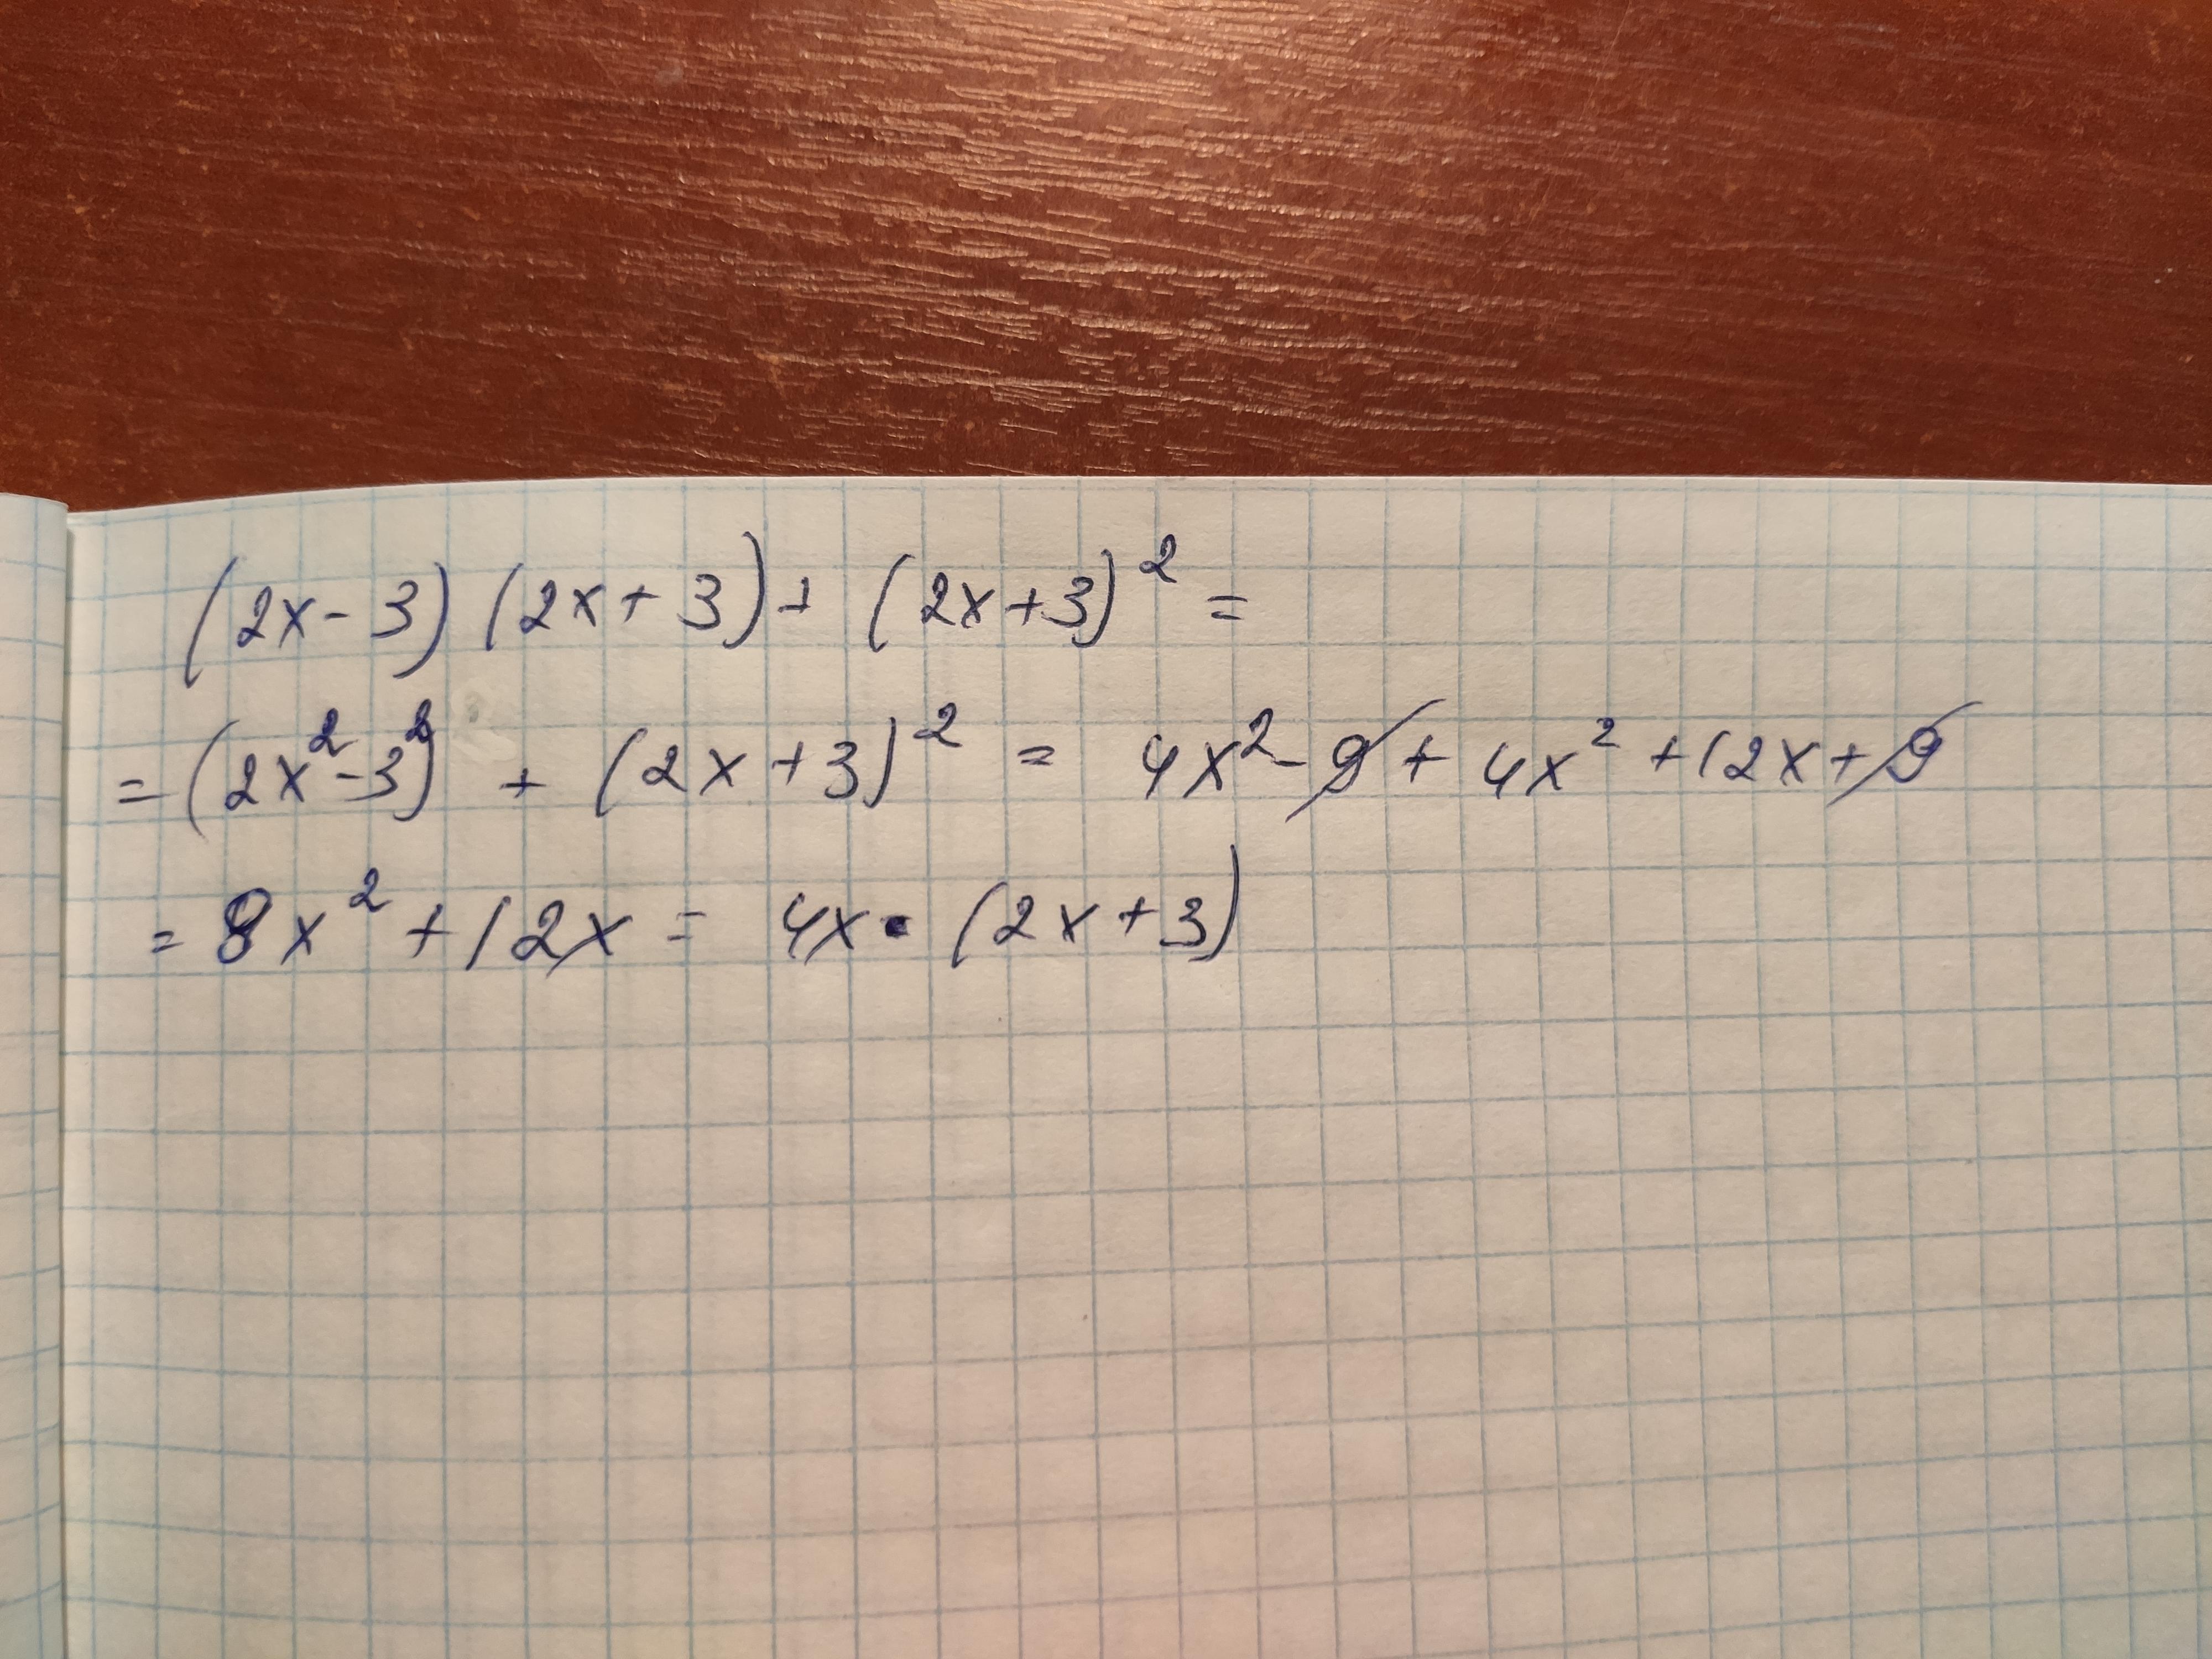 (2x-3)(2x+3)+(2x+3)²=
=(2x²-3²)+(2x+3)²=4x²-9+4x²+12x+9
=8x²+12x=4x·(2x+3)